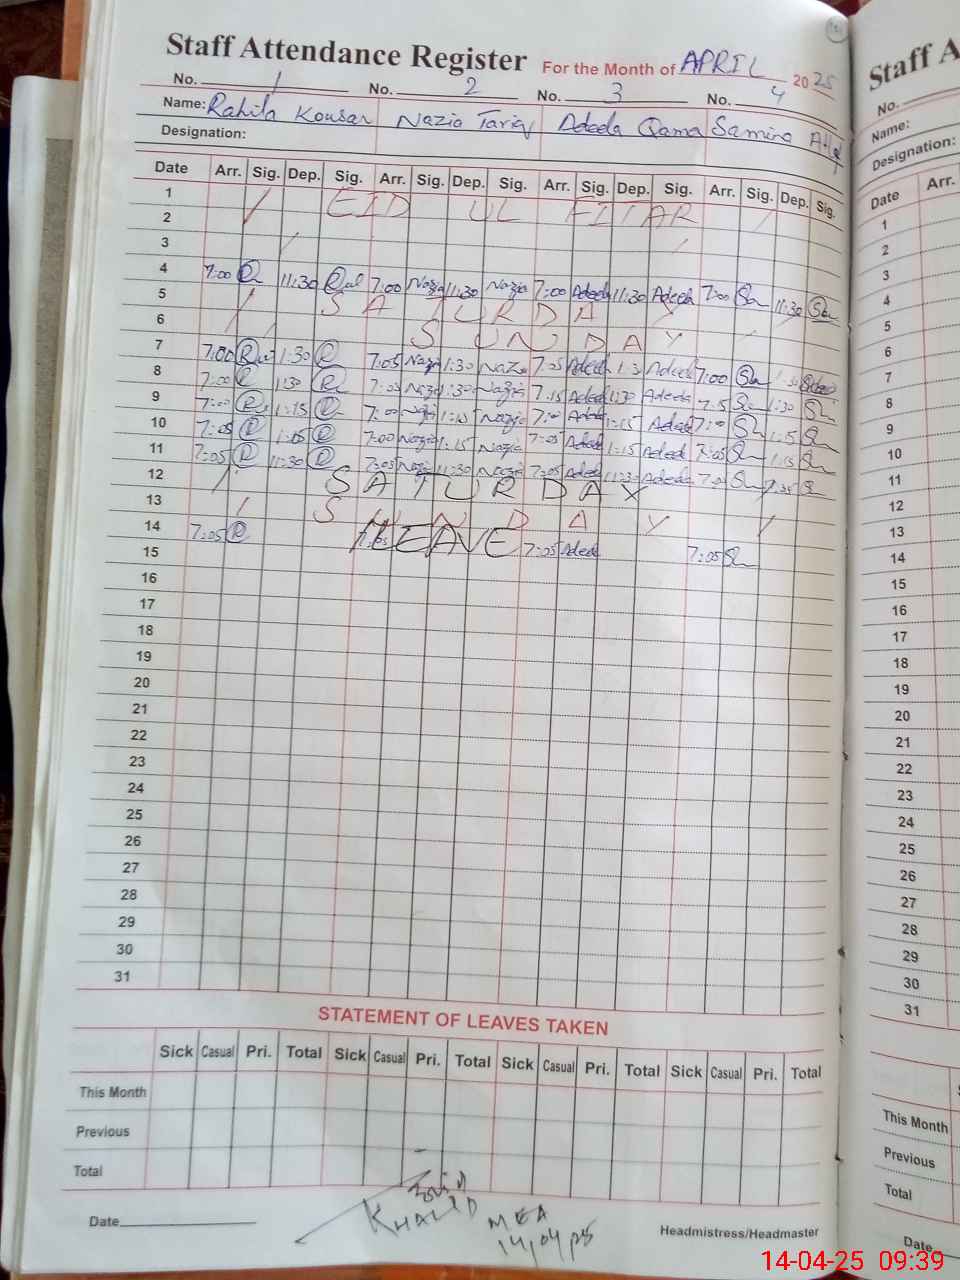 Staff Attendance Register For the Month of APRIL 2025
No. 1 No. 2 No. 3 No. 4
Name: Rahila Kousar Nazia Tariq Adeela Qama Samina
Designation:
Date Arr. Sig. Dep. Sig. Arr. Sig. Dep. Sig. Arr. Sig. Dep. Sig. Arr. Sig. Dep. Sig.
1 EID UL FITAR
2
3
4 7:00 11:30 7:00 Nazia 11:30 Nazia 7:00 Adeela 11:30 Adeela 7:00 11:30
5 SATURDAY
6 SUNDAY
7 7:00 1:30 7:05 Nazia 1:30 Nazia 7:05 Adeela 1:3 Adeela 7:00 1:30
8 7:00 1:30 7:05 Nazia 1:30 Nazia 7:15 Adeel 1:30 Adeela 7:15 1:30
9 7:00 1:15 7:00 Nazia 1:15 Nazia 7:00 Adeela 1:15 Adeel 7:00 1:15
10 7:05 1:15 7:00 Nazia 1:15 Nazia 7:05 Adeel 1:15 Adeela 7:05 1:15
11 7:05 11:30 7:05 Nazia 11:30 Nazia 7:05 Adeel 11:3 Adeela
12 SATURDAY
13 SUNDAY
14 7:05 LEAVE 7:05 Adeel 7:05
15
16
17
18
19
20
21
22
23
24
25
26
27
28
29
30
31
STATEMENT OF LEAVES TAKEN
Sick Casual Pri. Total Sick Casual Pri. Total Sick Casual Pri. Total Sick Casual Pri. Total
This Month
Previous
Total
KHALID MEA
14/04/25
Date Headmistress/Headmaster
Staff A
No.
Name:
Designation:
Date Arr.
1
2
3
4
5
6
7
8
9
10
11
12
13
14
15
16
17
18
19
20
21
22
23
24
25
26
27
28
29
30
31
This Month
Previous
Total
Date
14-04-25 09:39